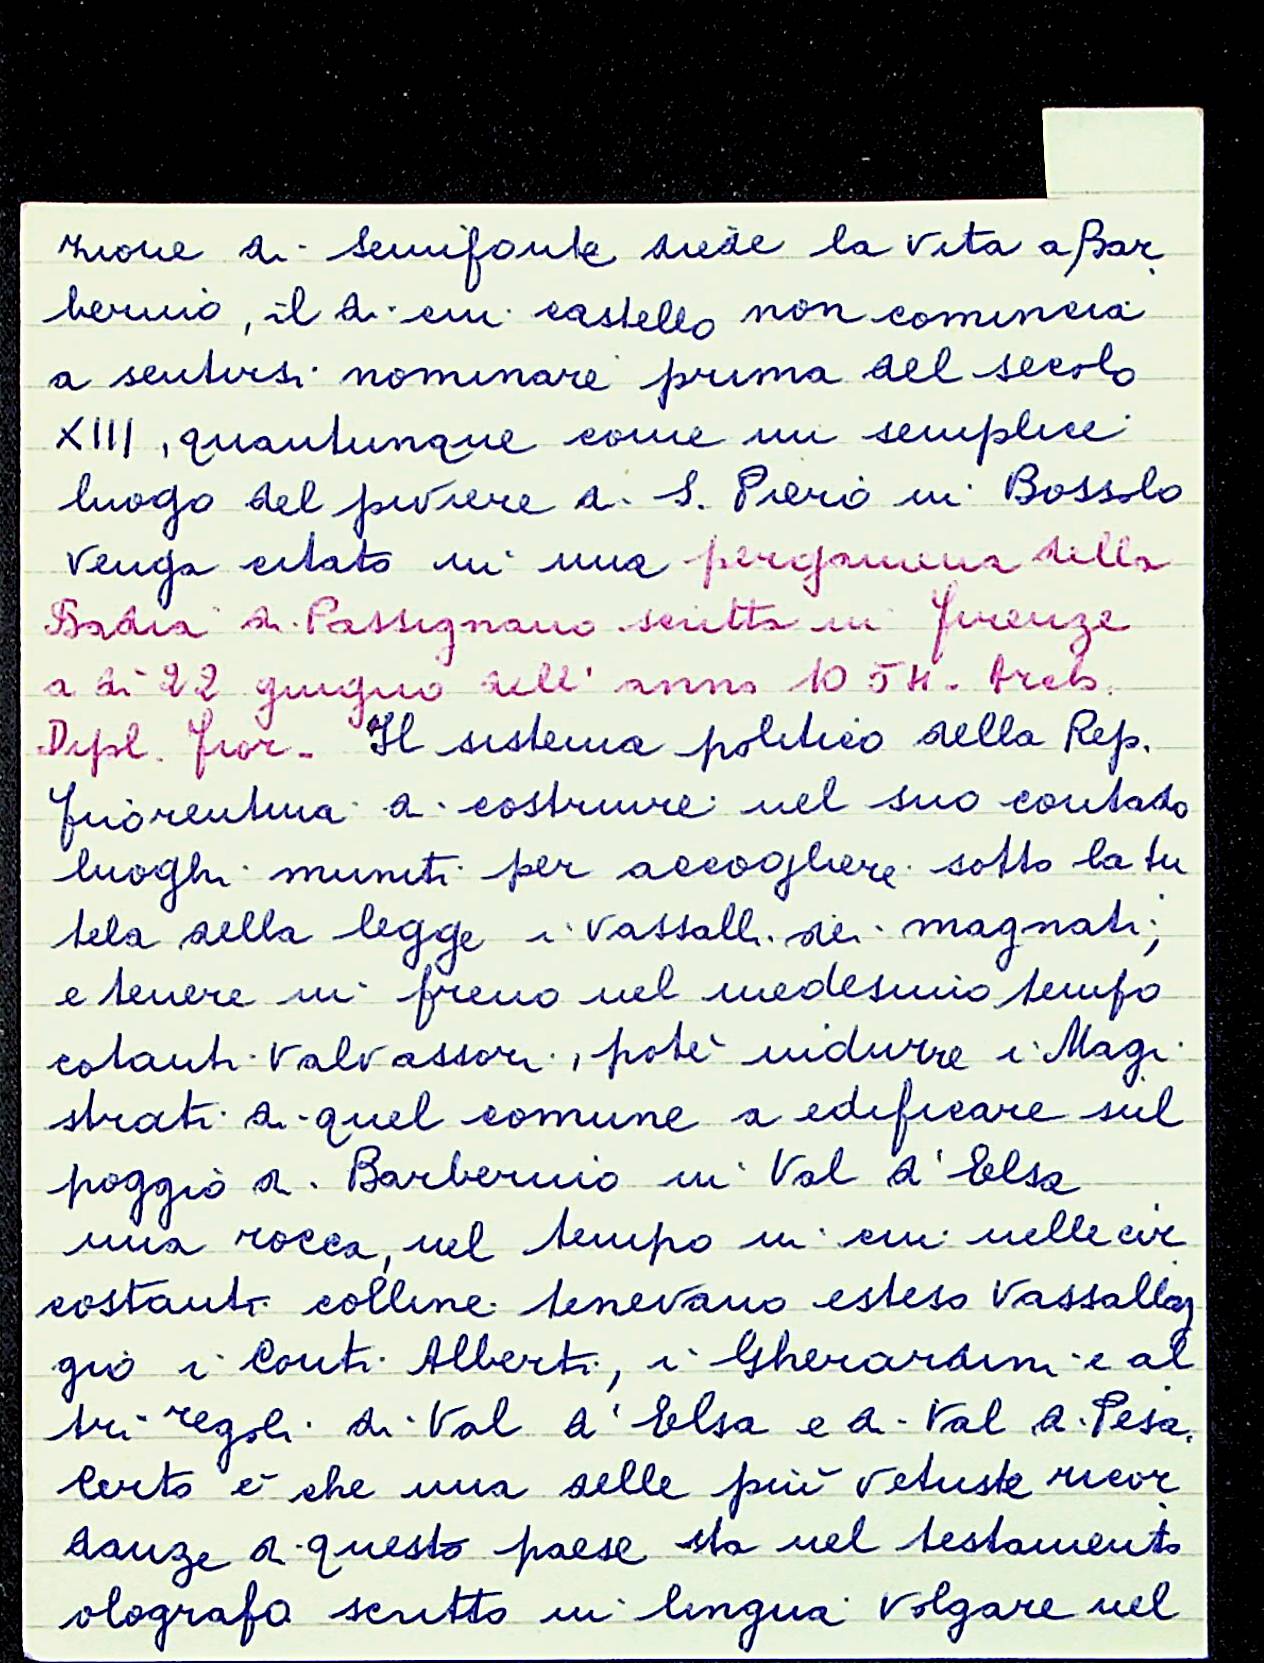 zione di Semifonte diede la vita a Bar
berino, il di cui castello non comincia
a sentirsi nominare prima del secolo
XIII, quantunque come un semplice
luogo del piviere di S. Piero in Bossolo
venga citato in una pergamena della
Badia di Passignano scritta in Firenze
a dì 22 giugno dell'anno 1054. Arch.
Dipl. Fior. Il sistema politico della Rep.
Fiorentina di costruire nel suo contado
luoghi muniti per accogliere sotto la tu
tela della legge i vassalli dei magnati;
e tenere in freno nel medesimo tempo
cotanti valvassori, potè indurre i Magi
strati di quel comune a edificare sul
poggio di Barberino in Val d'Elsa
una rocca, nel tempo in cui nelle cir
costanti colline tenevano esteso vassallag
gio i Conti Alberti, i Gherardini e al
tri regoli di Val d'Elsa e di Val di Pesa.
Certo è che una delle più vetuste ricor
danze di questo paese sta nel testamento
olografo scritto in lingua volgare nel